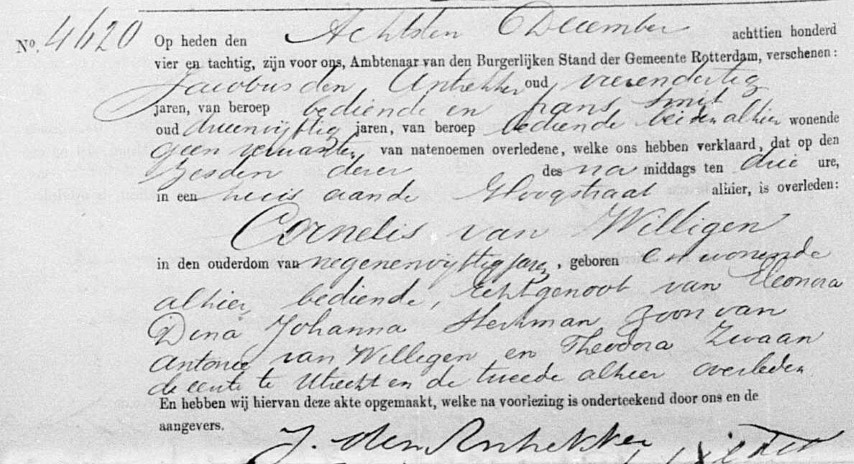 No. 4620 Op heden den Achtsten December achttien honderd
vier en tachtig, zijn voor ons, Ambtenaar van den Burgerlijken Stand der Gemeente Rotterdam, verschenen:
Jacobus den Anhekker oud vierendertig
jaren, van beroep bediende en frans smit
oud drieenvijftig jaren, van beroep bediende beiden alhier wonende
geen verwanten van natenoemen overledene, welke ons hebben verklaard, dat op den
Zesden dezer des na middags ten drie ure,
in een huis aande Hoogstraat alhier, is overleden:
Cornelis van Willigen
in den ouderdom van negenenvijftig jaren, geboren en wonende
alhier, bediende, Echtgenoot van Eleonora
Dina Johanna Sterkman zoon van
Antonie van Willigen en Theodora Zwaan
de eerste te Utrecht en de tweede alhier overleden
En hebben wij hiervan deze akte opgemaakt, welke na voorlezing is onderteekend door ons en de
aangevers.
J. den Anhekker